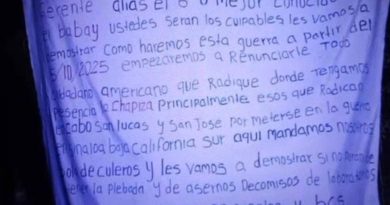 Gerente alias el 6 o mejor conocido
el babay ustedes seran los culpables les vamos a
demostrar como haremos esta guerra a partir del
5/10/2025 empezaremos a Renunciarle Todo
ciudadano americano que Radique donde Tengamos
presencia la Chapiza Principalmente esos que Radican
en Cabo San Lucas y San Jose por meterse en la guerra
Sinaloa baja California Sur aqui Mandamos nosotros
de culeros y les vamos a demostrar si no
la Plebada y de asernos Decomisos de
y bcs